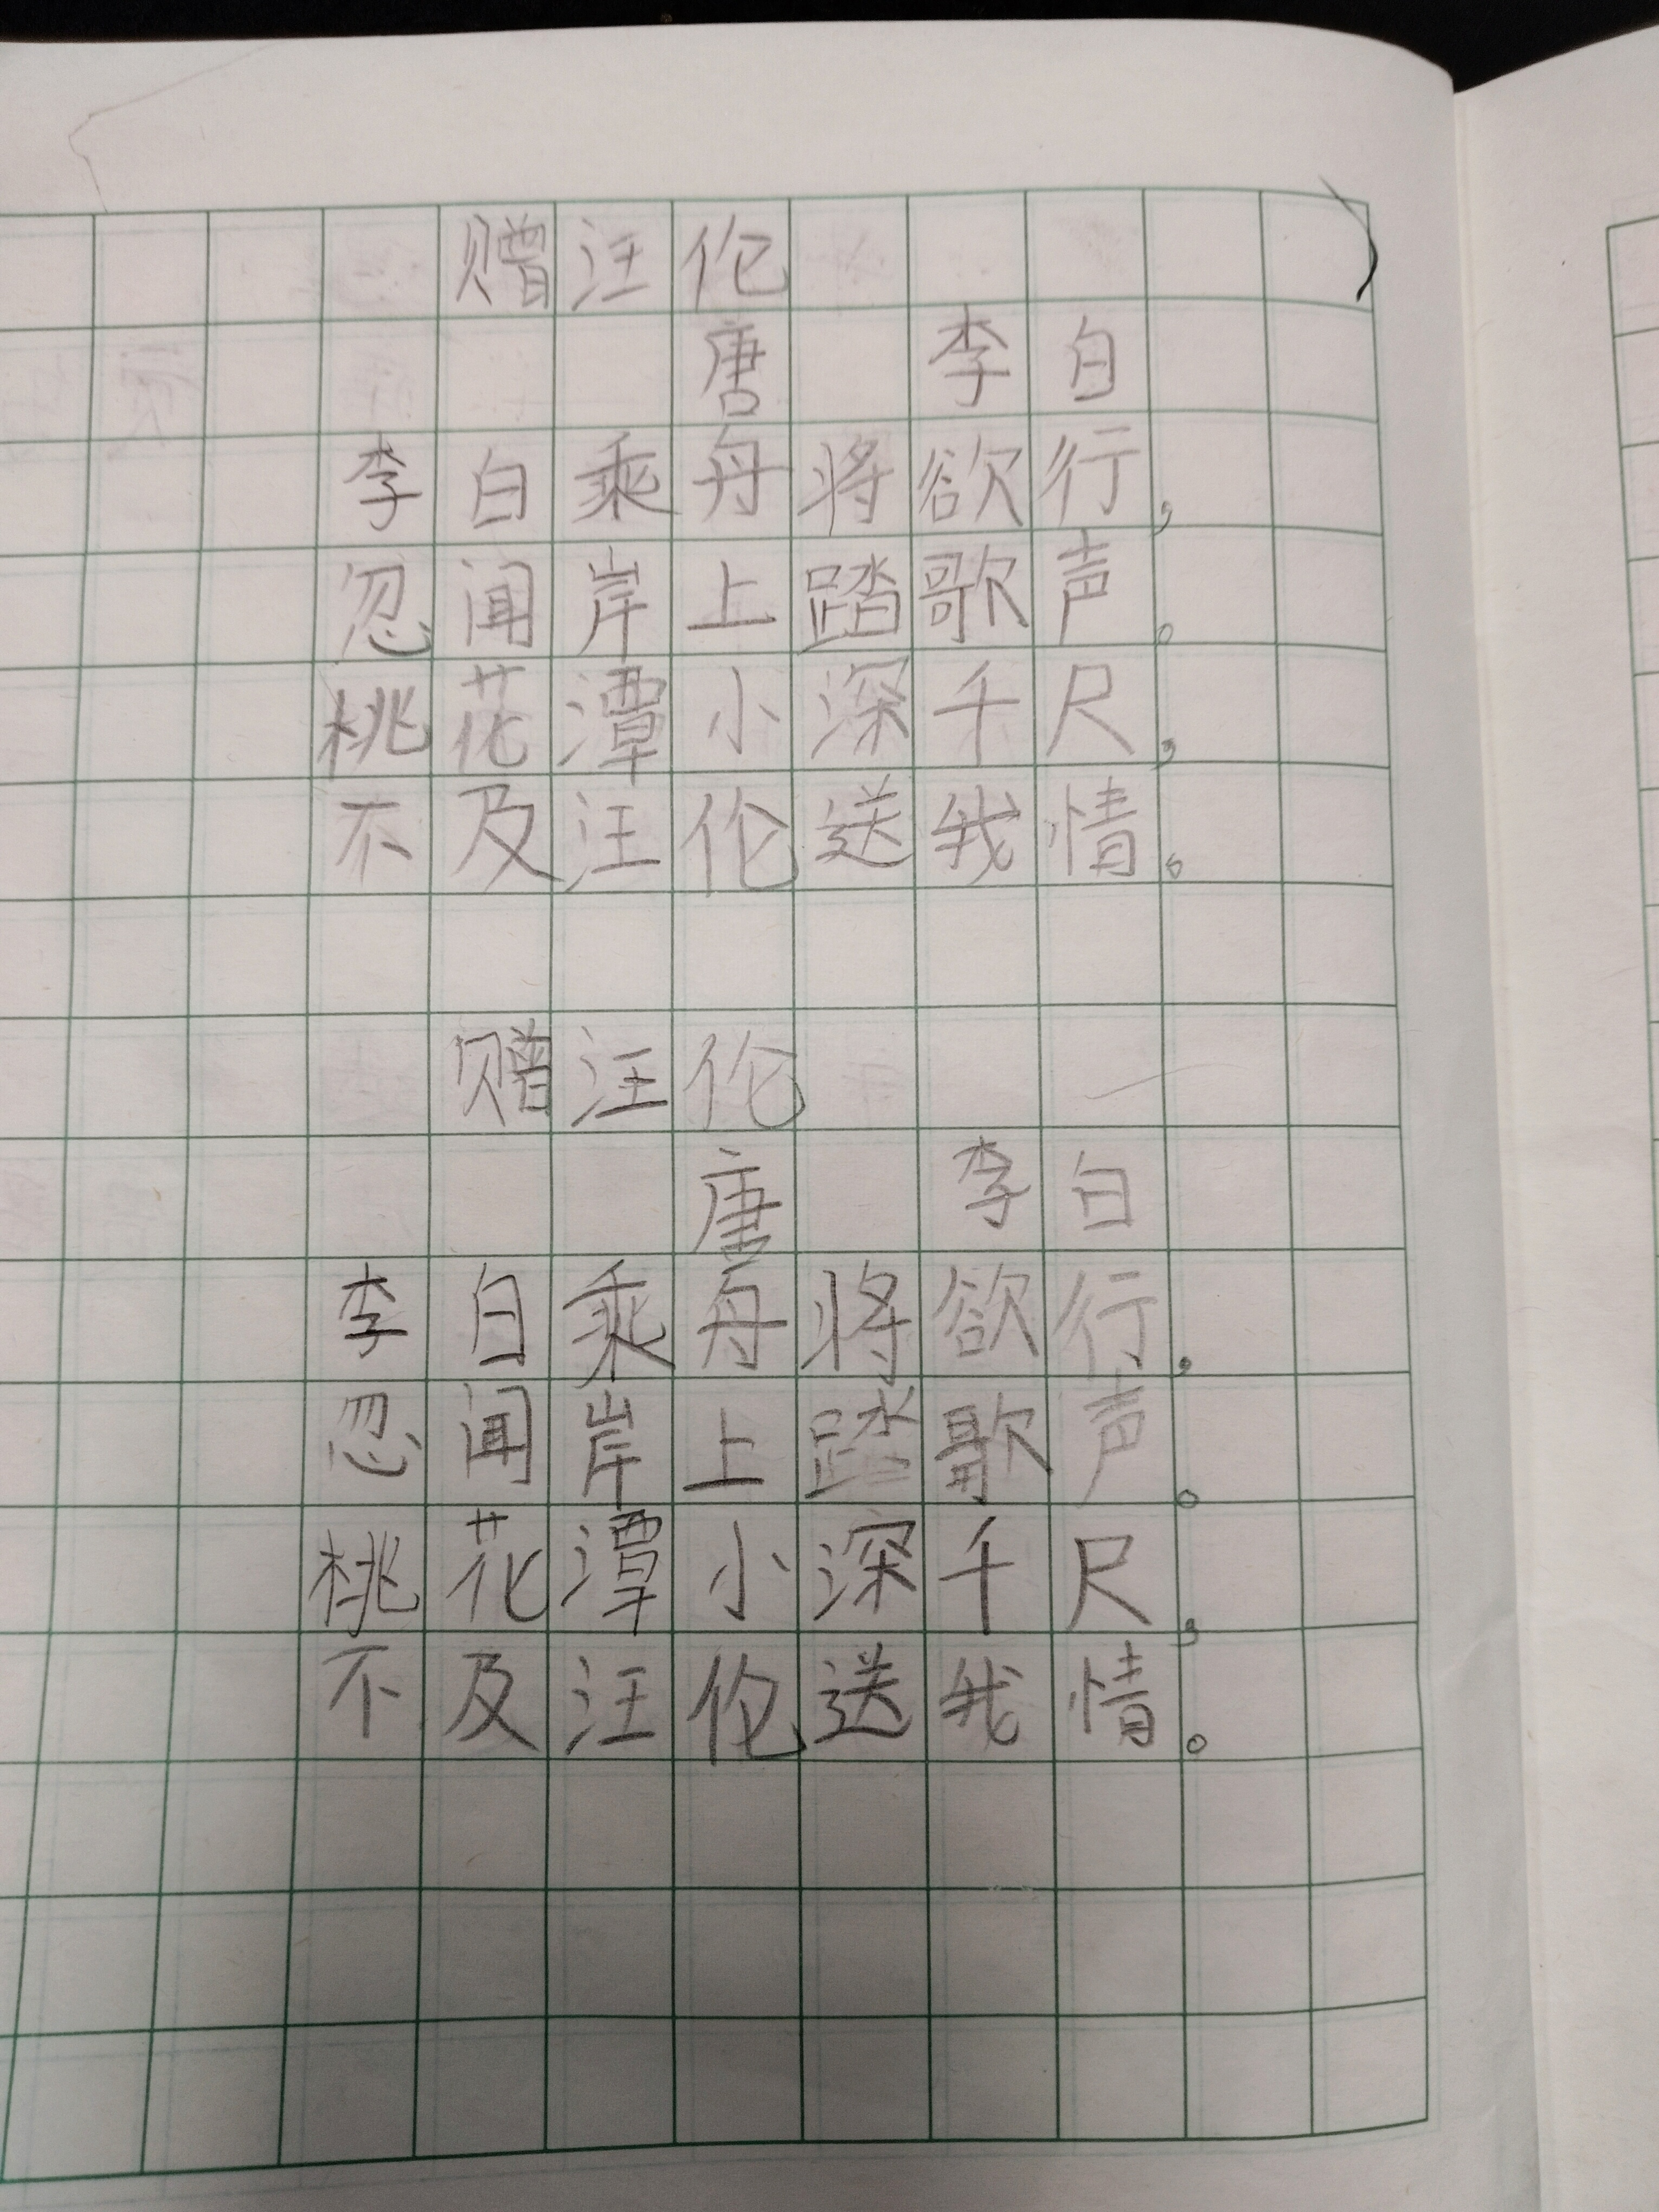 赠汪伦
唐 李白
李白乘舟将欲行，
忽闻岸上踏歌声。
桃花潭小深千尺，
不及汪伦送我情。
赠汪伦
唐 李白
李白乘舟将欲行，
忽闻岸上踏歌声。
桃花潭小深千尺，
不及汪伦送我情。